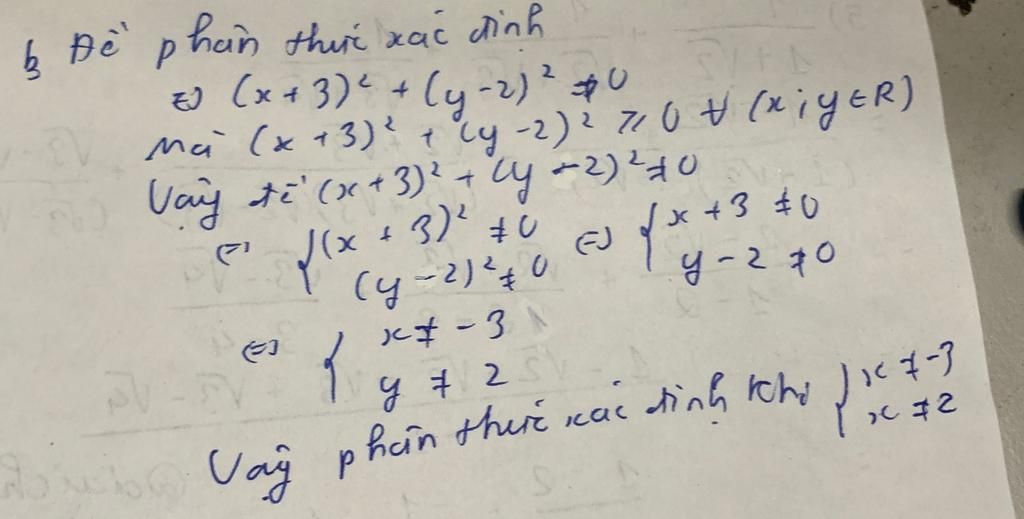 b, Để phân thức xác định
⇔ (x + 3)² + (y - 2)² ≠ 0
Mà (x + 3)² + (y - 2)² ≥ 0 ∀ (x ; y ∈ R)
Vậy để (x + 3)² + (y - 2)² ≠ 0
⇔ { (x + 3)² ≠ 0 ⇔ { x + 3 ≠ 0
(y - 2)² ≠ 0 y - 2 ≠ 0
⇔ { x ≠ - 3
y ≠ 2
Vậy phân thức xác định khi { x ≠ -3
x ≠ 2